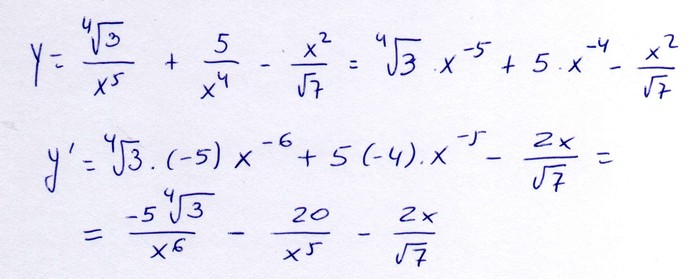 y = ∜3/x⁵ + 5/x⁴ - x²/√7 = ∜3 · x⁻⁵ + 5 · x⁻⁴ - x²/√7
y' = ∜3 · (-5) x⁻⁶ + 5 (-4) · x⁻⁵ - 2x/√7 =
= -5∜3/x⁶ - 20/x⁵ - 2x/√7